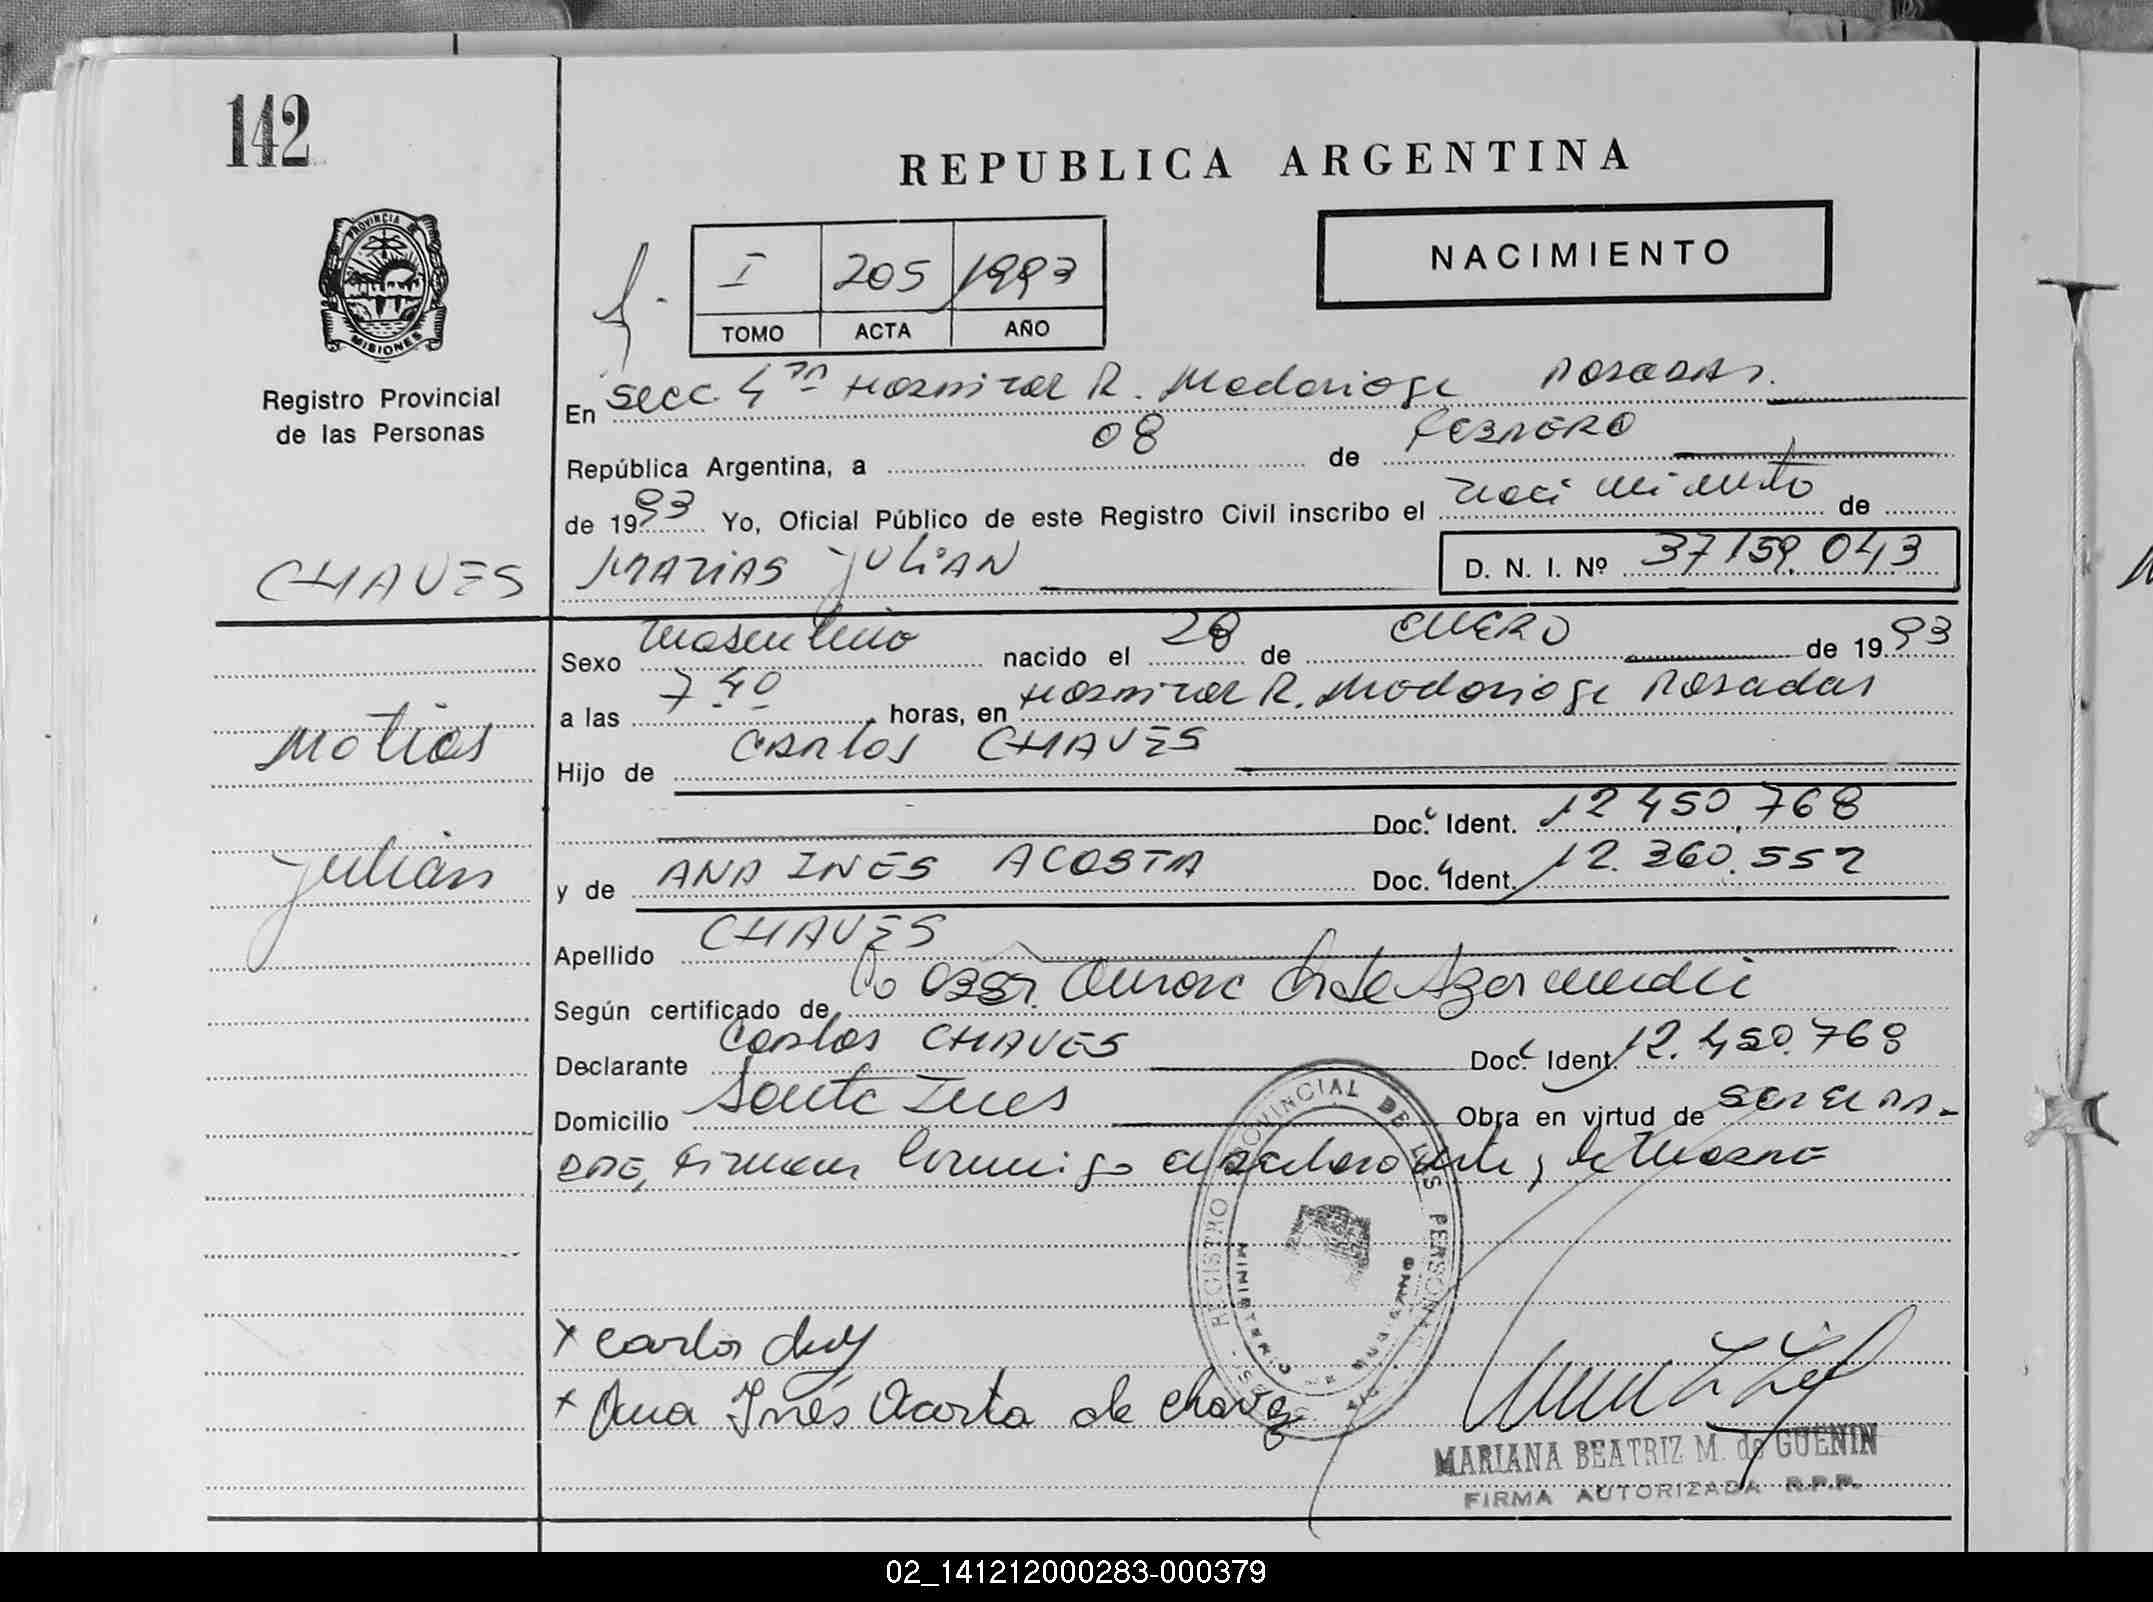 142
REPUBLICA ARGENTINA
PROVINCIA DE
MISIONES
Registro Provincial
de las Personas
NACIMIENTO
I 205 1993
TOMO ACTA AÑO
En Secc. 4ta Hospital R. Madariaga Posadas.
República Argentina, a 08 de FEBRERO
de 1993 Yo, Oficial Público de este Registro Civil inscribo el nacimiento de
CHAVES MATIAS JULIAN D. N. I. Nº 37159.043
Sexo masculino nacido el 28 de ENERO de 1993
a las 7.40 horas, en Hospital R. Madariaga Posadas
Matias
Hijo de Carlos CHAVES
Doc. Ident. 12 450.768
Julián
y de ANA INES ACOSTA Doc. Ident. 12.360.552
Apellido CHAVES
Según certificado de Obst.
Declarante Carlos CHAVES Doc. Ident. 12.450.768
Domicilio Santa Ines Obra en virtud de
firman conmigo el declarante y la madre
REGISTRO PROVINCIAL DE LAS PERSONAS
MINISTERIO
x Carlos
x Ana Inés Acosta de Chavez
MARIANA BEATRIZ M. de GUENIN
FIRMA AUTORIZADA R.P.P.
02_141212000283-000379